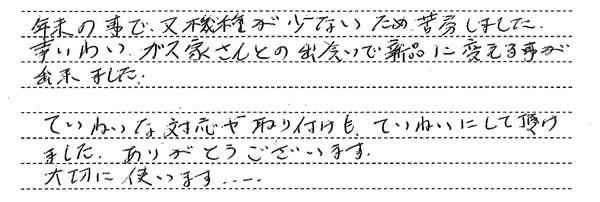 年末の事で、又機種が少ないため苦労しました。
幸いわい、ガス家さんとの出会いで新品に変える事が
出来ました。
ていねいな対応や取り付けも、ていねいにして頂け
ました。ありがとうございます。
大切に使います....